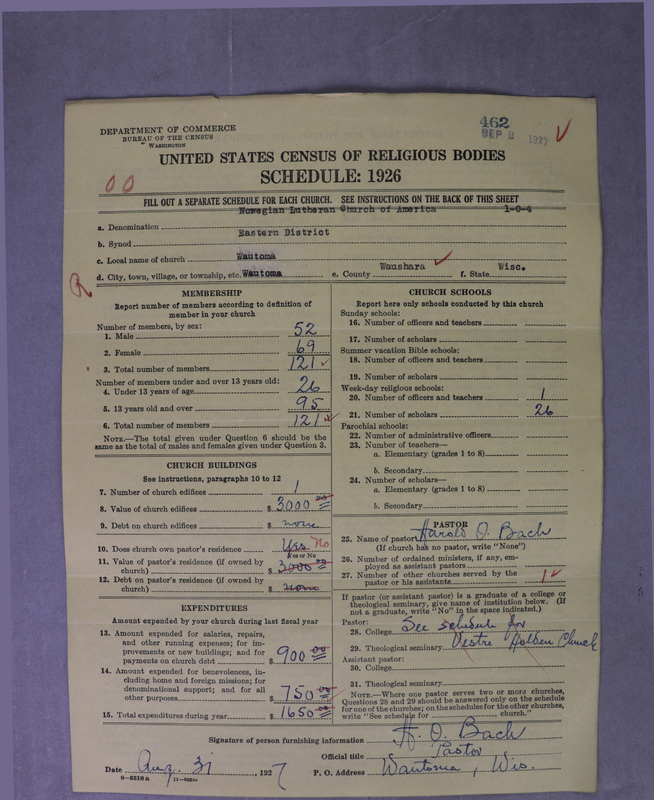 DEPARTMENT OF COMMERCE
BUREAU OF THE CENSUS
WASHINGTON
462
SEP 2 1927
UNITED STATES CENSUS OF RELIGIOUS BODIES
SCHEDULE: 1926
00
FILL OUT A SEPARATE SCHEDULE FOR EACH CHURCH. SEE INSTRUCTIONS ON THE BACK OF THIS SHEET
a. Denomination Nowegian Lutheran Church of America 1-0-4
b. Synod Eastern District
c. Local name of church Wautoma
d. City, town, village, or township, etc. Wautoma e. County Waushara f. State Wisc.
R
MEMBERSHIP
Report number of members according to definition of
member in your church
Number of members, by sex:
1. Male 52
2. Female 69
3. Total number of members 121
Number of members under and over 13 years old:
4. Under 13 years of age 26
5. 13 years old and over 95
6. Total number of members 121
NOTE.—The total given under Question 6 should be the
same as the total of males and females given under Question 3.
CHURCH BUILDINGS
See instructions, paragraphs 10 to 12
7. Number of church edifices 1
8. Value of church edifices $3000 00
9. Debt on church edifices $ none
10. Does church own pastor's residence Yes No
Yes or No
11. Value of pastor's residence (if owned by
church) $3000 00
12. Debt on pastor's residence (if owned by
church) $ none
EXPENDITURES
Amount expended by your church during last fiscal year
13. Amount expended for salaries, repairs,
and other running expenses; for im-
provements or new building; and for
payments on church debt $900 00
14. Amount expended for benevolences, in-
cluding home and foreign missions; for
denominational support; and for all
other purposes $750 00
15. Total expenditures during year $1650 00
CHURCH SCHOOLS
Report here only schools conducted by this church
Sunday schools:
16. Number of officers and teachers
17. Number of scholars
Summer vacation Bible schools:
18. Number of officers and teachers
19. Number of scholars
Week-day religious schools:
20. Number of officers and teachers 1
21. Number of scholars 26
Parochial schools:
22. Number of administrative officers
23. Number of teachers—
a. Elementary (grades 1 to 8)
b. Secondary
24. Number of scholars—
a. Elementary (grades 1 to 8)
b. Secondary
PASTOR
25. Name of pastor Harold O. Bach
(If church has no pastor, write "None")
26. Number of ordained ministers, if any, em-
ployed as assistant pastors
27. Number of other churches served by the
pastor or his assistants 1
If pastor (or assistant pastor) is a graduate of a college or
theological seminary, give name of institution below. (If
not a graduate, write "No" in the space indicated.)
Pastor:
28. College See schedule for
29. Theological seminary Vestre Holden Church
Assistant pastor:
30. College
31. Theological seminary
NOTE.—Where one pastor serves two or more churches,
Questions 28 and 29 should be answered only on the schedule
for one of the churches; on the schedules for the other churches,
write "See schedule for church."
Signature of person furnishing information H. O. Bach
Official title Pastor
Date Aug. 31, 1927 P. O. Address Wautoma, Wis.
8—5518a